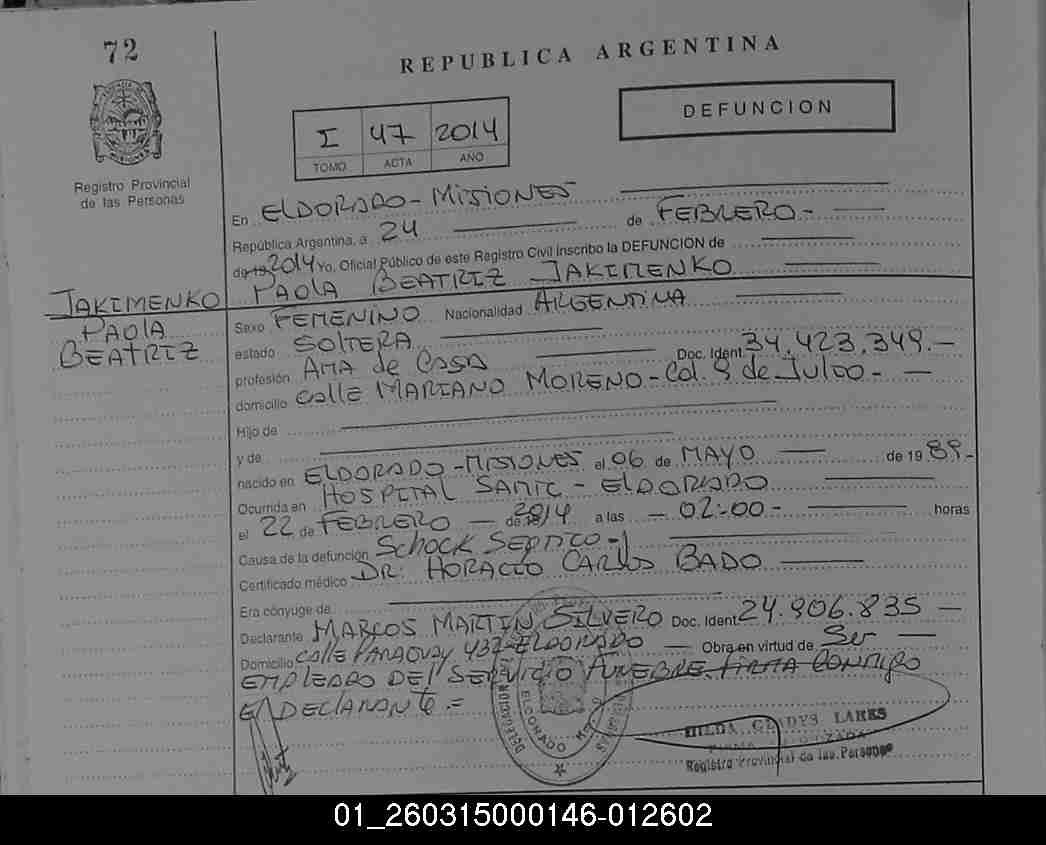 72
REPUBLICA ARGENTINA
DEFUNCION
I 47 2014
TOMO ACTA AÑO
Registro Provincial
de las Personas
En ELDORADO - MISIONES
República Argentina, a 24 de FEBRERO.-
de 19 2014 Yo, Oficial Público de este Registro Civil inscribo la DEFUNCION de
JAKIMENKO PAOLA BEATRIZ JAKIMENKO
PAOLA
BEATRIZ
Sexo FEMENINO Nacionalidad ARGENTINA
estado SOLTERA
profesión AMA de CASA Doc. Ident. 34.423.349.-
domicilio calle MARIANO MORENO - Col. 9 de Julio - -
Hijo de
y de
nacido en ELDORADO - MISIONES el 06 de MAYO de 19 89.-
Ocurrida en HOSPITAL SAMIC - ELDORADO
el 22 de FEBRERO - de 2014 a las - 02:00 - horas
Causa de la defunción SCHOCK SEPTICO -
Certificado médico DR. HORACIO CARLOS BADO
Era cónyuge de
Declarante MARCOS MARTIN SILVERO Doc. Ident 24.906.835 -
Domicilio calle PARAGUAY 437 - ELDORADO Obra en virtud de Ser -
EMPLEADO DEL SERVICIO FUNEBRE. FIRMA CONMIGO
El DECLARANTE =
HILDA GLADYS LARKS
Registro Provincial de las Personas
DELEGACION
ELDORADO
01_260315000146-012602